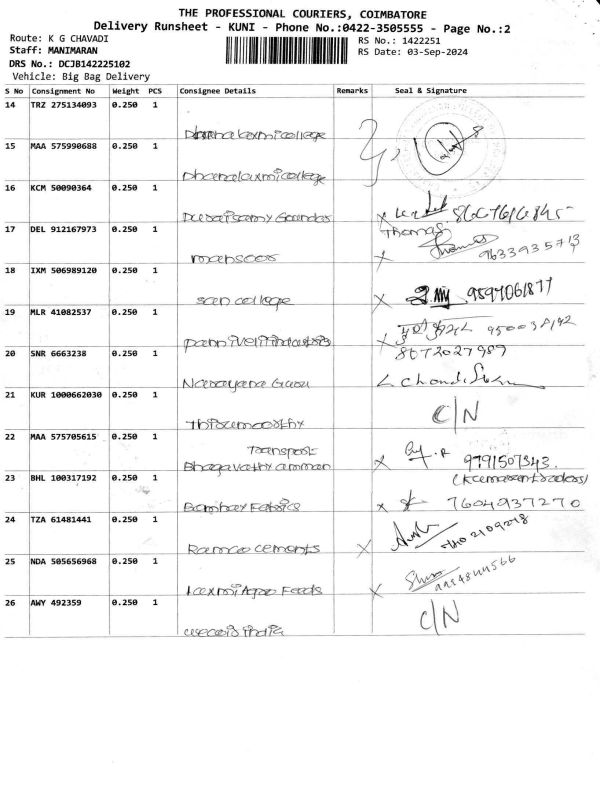 THE PROFESSIONAL COURIERS, COIMBATORE
Delivery Runsheet - KUNI - Phone No.:0422-3505555 - Page No.:2
Route: K G CHAVADI RS No.: 1422251
Staff: MANIMARAN RS Date: 03-Sep-2024
DRS No.: DCJB142225102
Vehicle: Big Bag Delivery
S No Consignment No Weight PCS Consignee Details Remarks Seal & Signature
14 TRZ 275134093 0.250 1
Dhanalaxmi college
15 MAA 575990688 0.250 1
Dhanalaxmi college
16 KCM 50090364 0.250 1
Duraisamy Gounder
17 DEL 912167973 0.250 1 Thomas
mansoor 9633935713
18 IXM 506989120 0.250 1
san college 9597061877
19 MLR 41082537 0.250 1
20 SNR 6663238 0.250 1 8072027989
Narayana Guru
21 KUR 1000662030 0.250 1
Thirumoorthy C/N
22 MAA 575705615 0.250 1
Transport
Bhagavathy amman 9791507343
23 BHL 100317192 0.250 1
Bombay Fabrics 7604937270
24 TZA 61481441 0.250 1
Ramco cements
25 NDA 505656968 0.250 1
Laxmi Agro Feeds
26 AWY 492359 0.250 1
india C/N